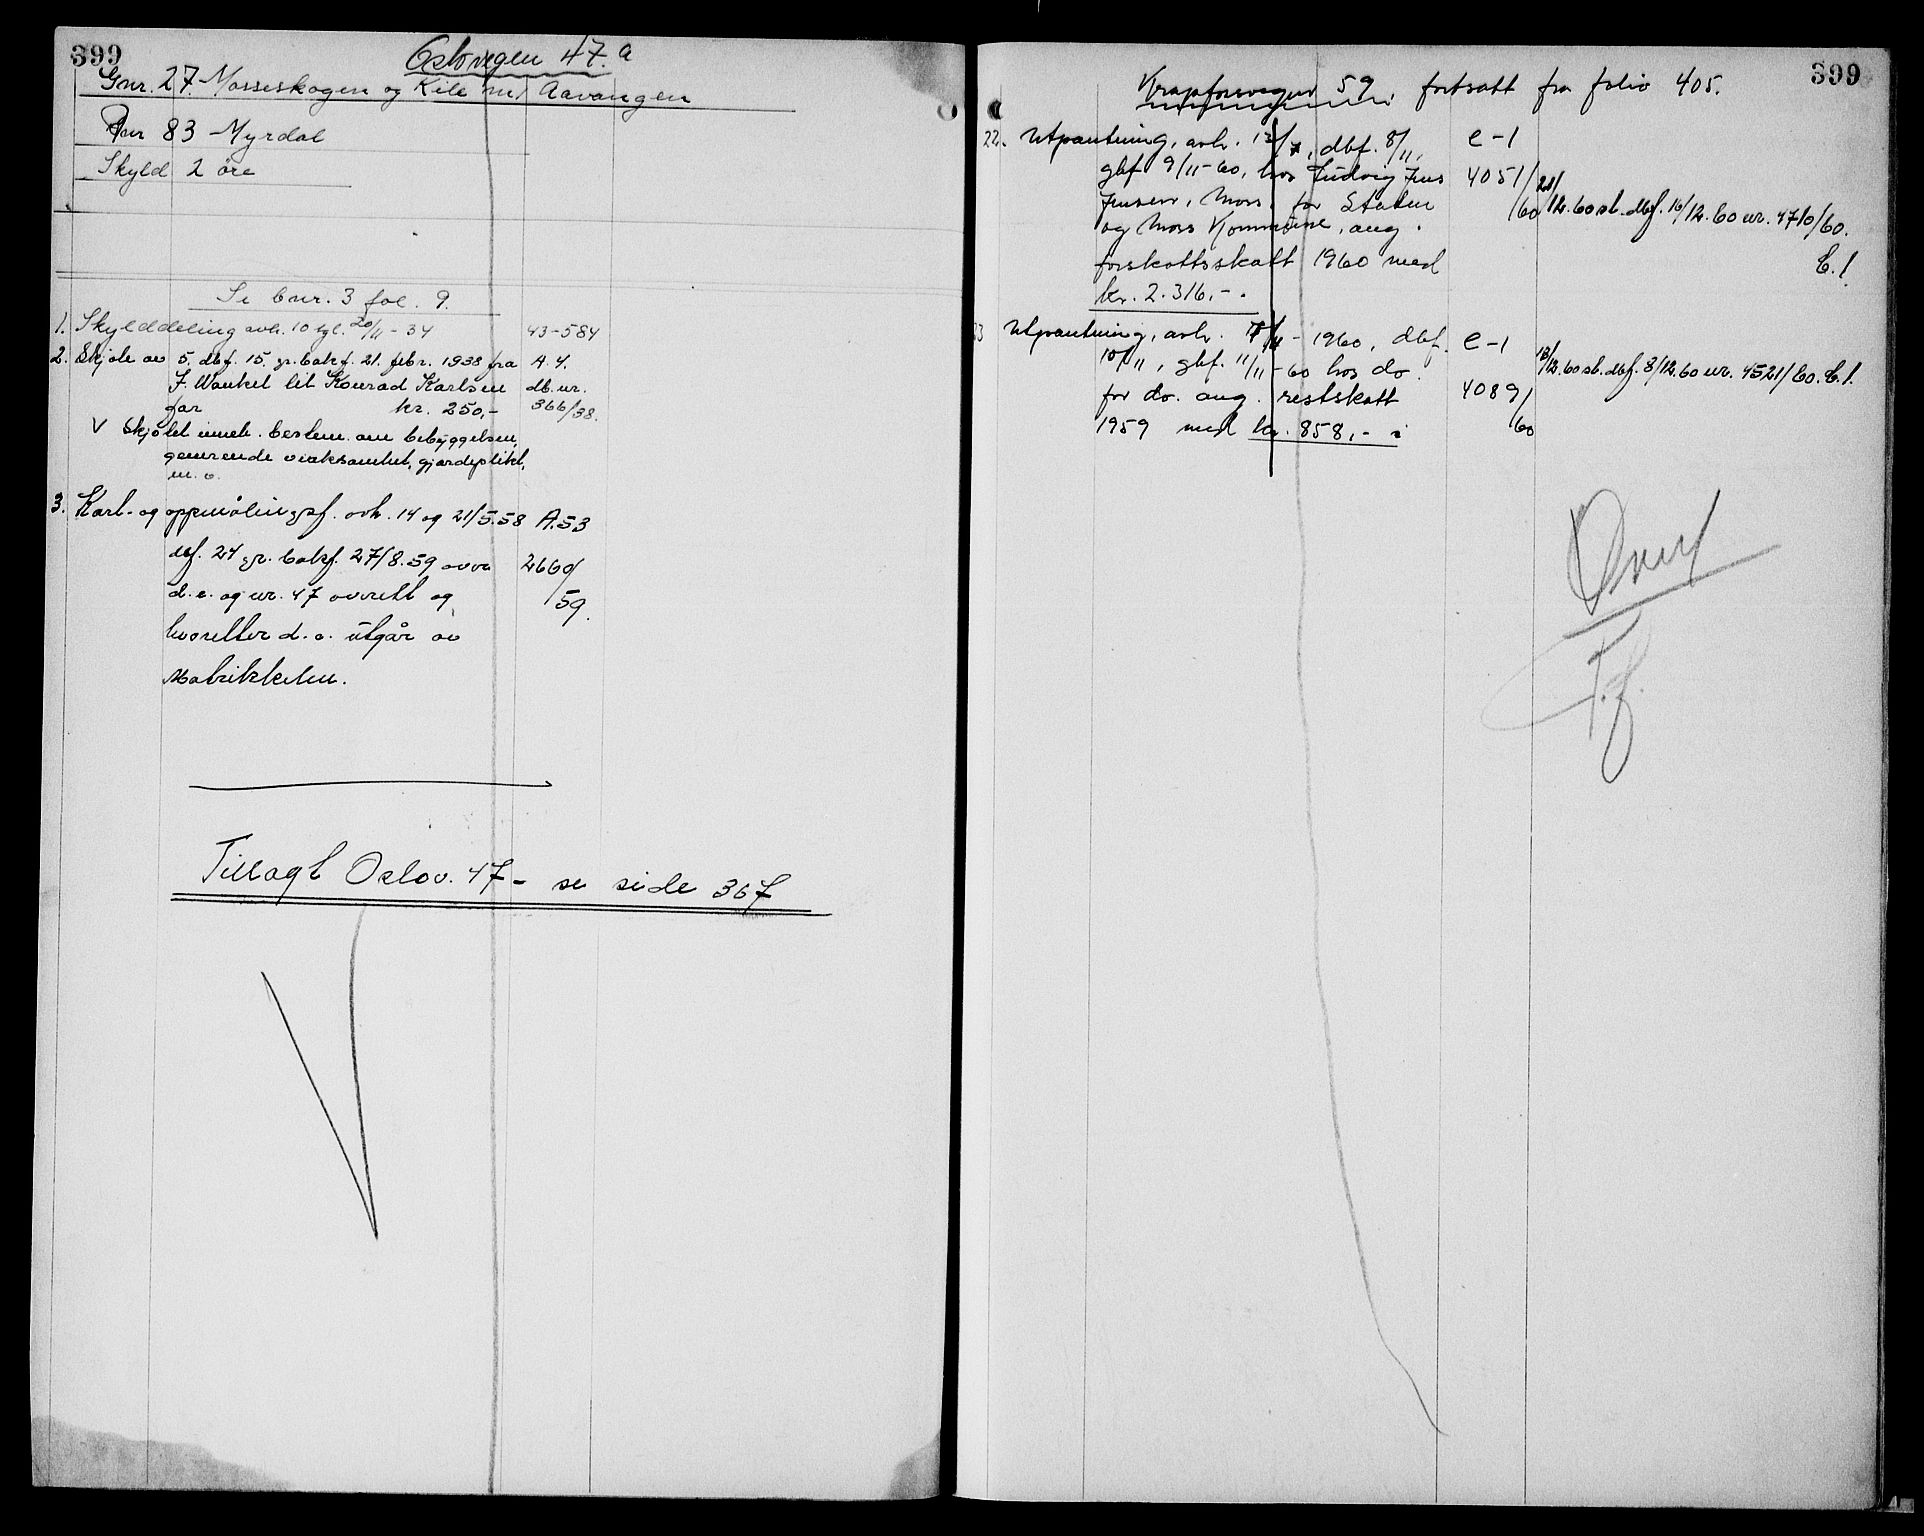 399
Oslovegen 47.a
Gnr. 27. Mosseskogen og Kile m/ Aavangen
Bnr 83 Myrdal
Skyld 2 öre
Se bnr. 3 fol. 9.
1. Skylddeling avh. 10 tgl. 20/11 - 34 43-584
2. Skjöte av 5, dbf. 15. gr.bokf. 21. febr. 1938 fra A. 4.
J. Wankel til Konrad Karlsen db.nr.
for kr. 250,- 366/38.
V Skjötet inneh. bestem. om bebyggelsen,
generende virksomhet, gjerdeplikt,
m. v.
3. Kart- og oppmålingsf. avh. 14 og 21/5.58 A.53
dbf. 24 gr. bokf. 27/8.59 over 2660/
d.e. og nr. 47 overett og 59.
hvoretter d. e. utgår av
Matrikkelen.
Tillagt Oslov. 47 - se side 367
399
Krapfossvegen 59. fortsatt fra folio 405.
22. Utpantning, avh. 12/7, dbf. 8/11, e-1
gbf 9/11-60, hos Ludvig Jens 4051/
Jensen, Moss, for Staten /60 21/12.60 sl. dbf. 16/12.60 nr. 4710/60.
og Moss Kommune, ang. E.l
forskottsskatt 1960 med
kr. 2.316,-.
23 Utpantning, avh. 7/11 - 1960, dbf. e-1
10/11, gbf. 11/11-60 hos do. 13/12.60 sl. dbf. 8/12.60 nr. 4521/60. E.l.
for do. ang. restskatt 4089/
1959 med kr. 858,- 60
T.f.